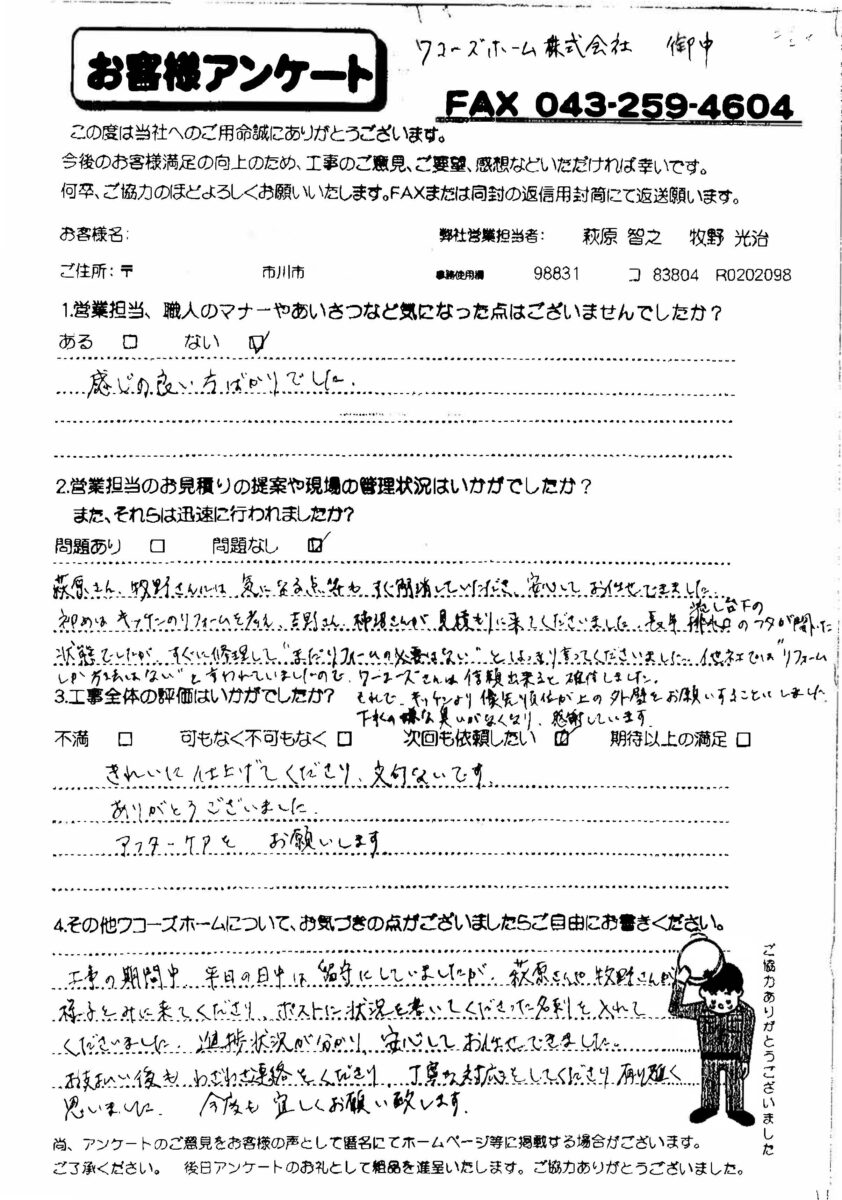 ワコーズホーム株式会社 御中
お客様アンケート
FAX 043-259-4604
この度は当社へのご用命誠にありがとうございます。
今後のお客様満足の向上のため、工事のご意見、ご要望、感想などいただければ幸いです。
何卒、ご協力のほどよろしくお願いいたします。FAXまたは同封の返信用封筒にて返送願います。
お客様名： 弊社営業担当者： 萩原 智之 牧野 光治
ご住所：〒 市川市 事務使用欄 98831 コ 83804 R0202098
1.営業担当、職人のマナーやあいさつなど気になった点はございませんでしたか？
ある □ ない ☑
感じの良い方ばかりでした.
2.営業担当のお見積りの提案や現場の管理状況はいかがでしたか？
また、それらは迅速に行われましたか？
問題あり □ 問題なし ☑
萩原さん、牧野さんには 気になる点等も すぐ解消していただき、安心して お任せできました.
初めは キッチンのリフォームを考え、吉野さん、神場さんが 見積もりに来てくださいました. 長年 流し台下の排水口のフタが開いた
状態でしたが、すぐに修理して"まだリフォームの必要はない"と はっきり言ってくださいました. 他社では"リフォーム
しか方法はない"と言われていましたので、ワコーズさんは信頼出来ると確信しました.
それで、キッチンより優先順位が上の外壁をお願いすることにしました.
下水の嫌な臭いがなくなり、感謝しています.
3.工事全体の評価はいかがでしたか？
不満 □ 可もなく不可もなく □ 次回も依頼したい ☑ 期待以上の満足 □
きれいに仕上げてくださり、文句ないです.
ありがとうございました.
アフターケアを お願いします.
4.その他ワコーズホームについて、お気づきの点がございましたらご自由にお書きください。
工事の期間中 平日の日中は 留守にしていましたが、萩原さんや牧野さんが
様子をみに来てくださり、ポストに状況を書いてくださった名刺を入れて
くださいました. 進捗状況が分かり、安心して お任せできました.
お支払い後も わざわざ連絡をくださり、丁寧な対応をしてくださり有り難く
思いました. 今後も 宜しくお願い致します.
ご協力ありがとうございました
尚、アンケートのご意見をお客様の声として匿名にてホームページ等に掲載する場合がございます。
ご了承ください。 後日アンケートのお礼として粗品を進呈いたします。ご協力ありがとうございました。